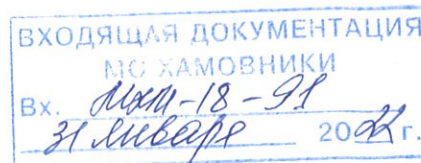 ВХОДЯЩАЯ ДОКУМЕНТАЦИЯ
МО ХАМОВНИКИ
Вх. МХМ-18-91
31 января 2022 г.